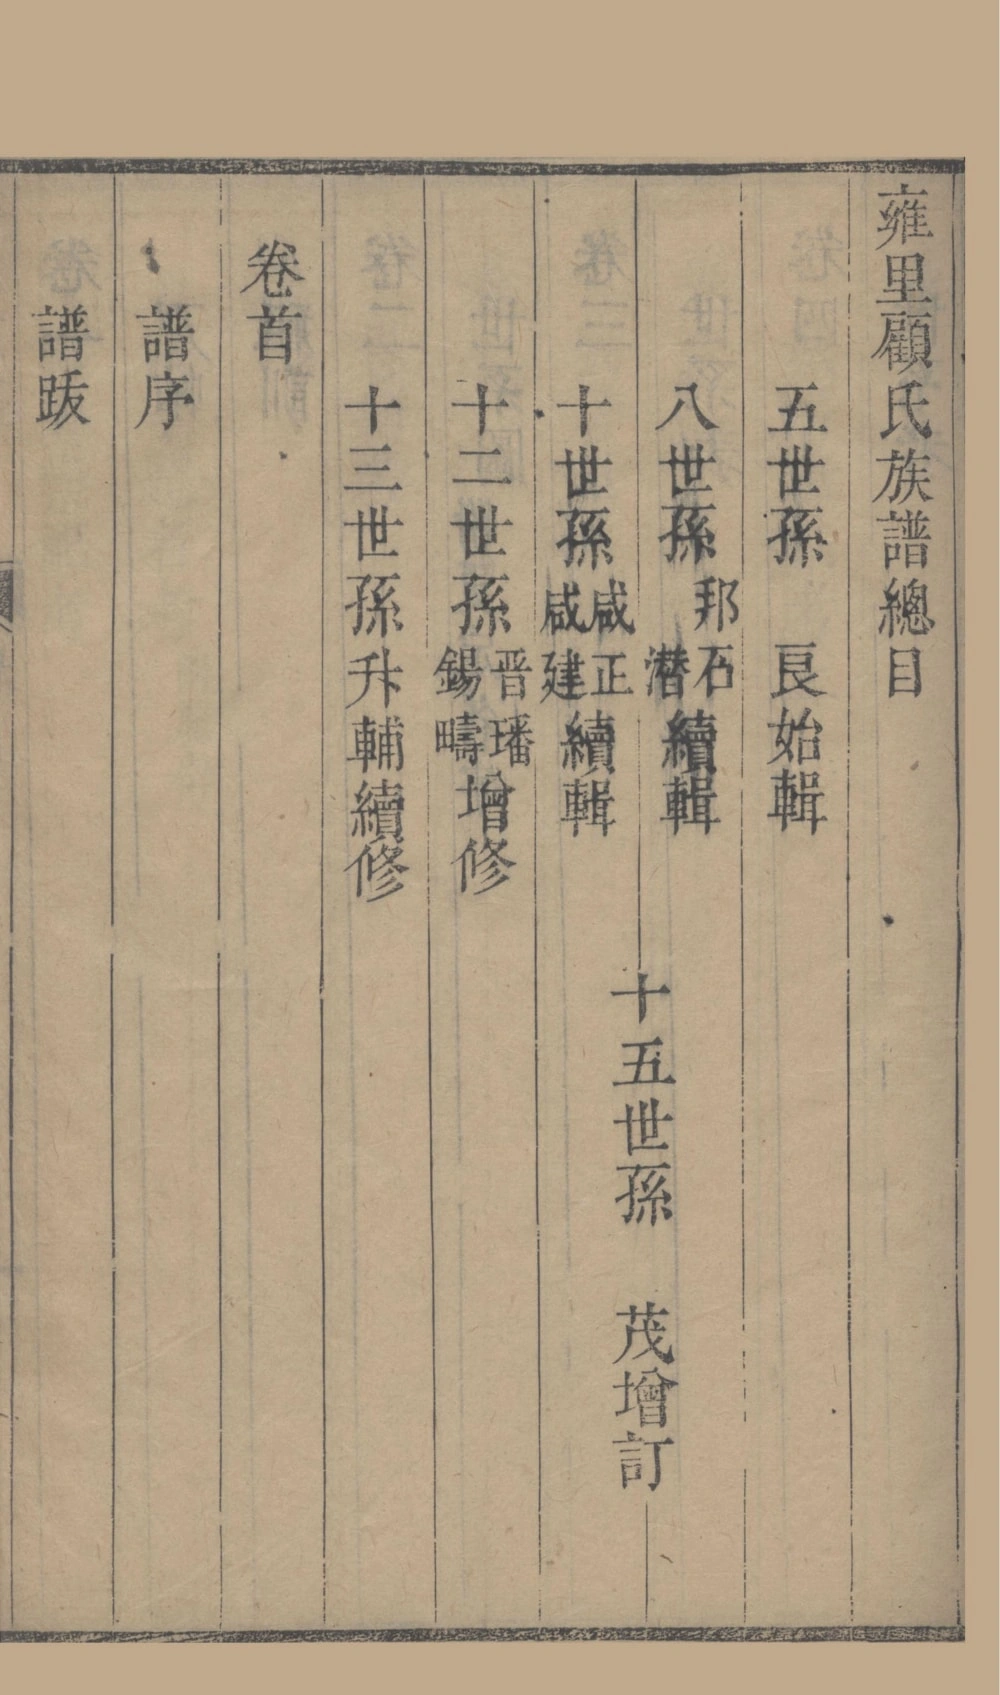 雍里顧氏族譜總目
五世孫　良始輯
八世孫邦石潛續輯
十世孫咸正咸建續輯
十五世孫　茂增訂
十二世孫晋璠錫疇增修
十三世孫升輔續修
卷首
譜序
譜跋